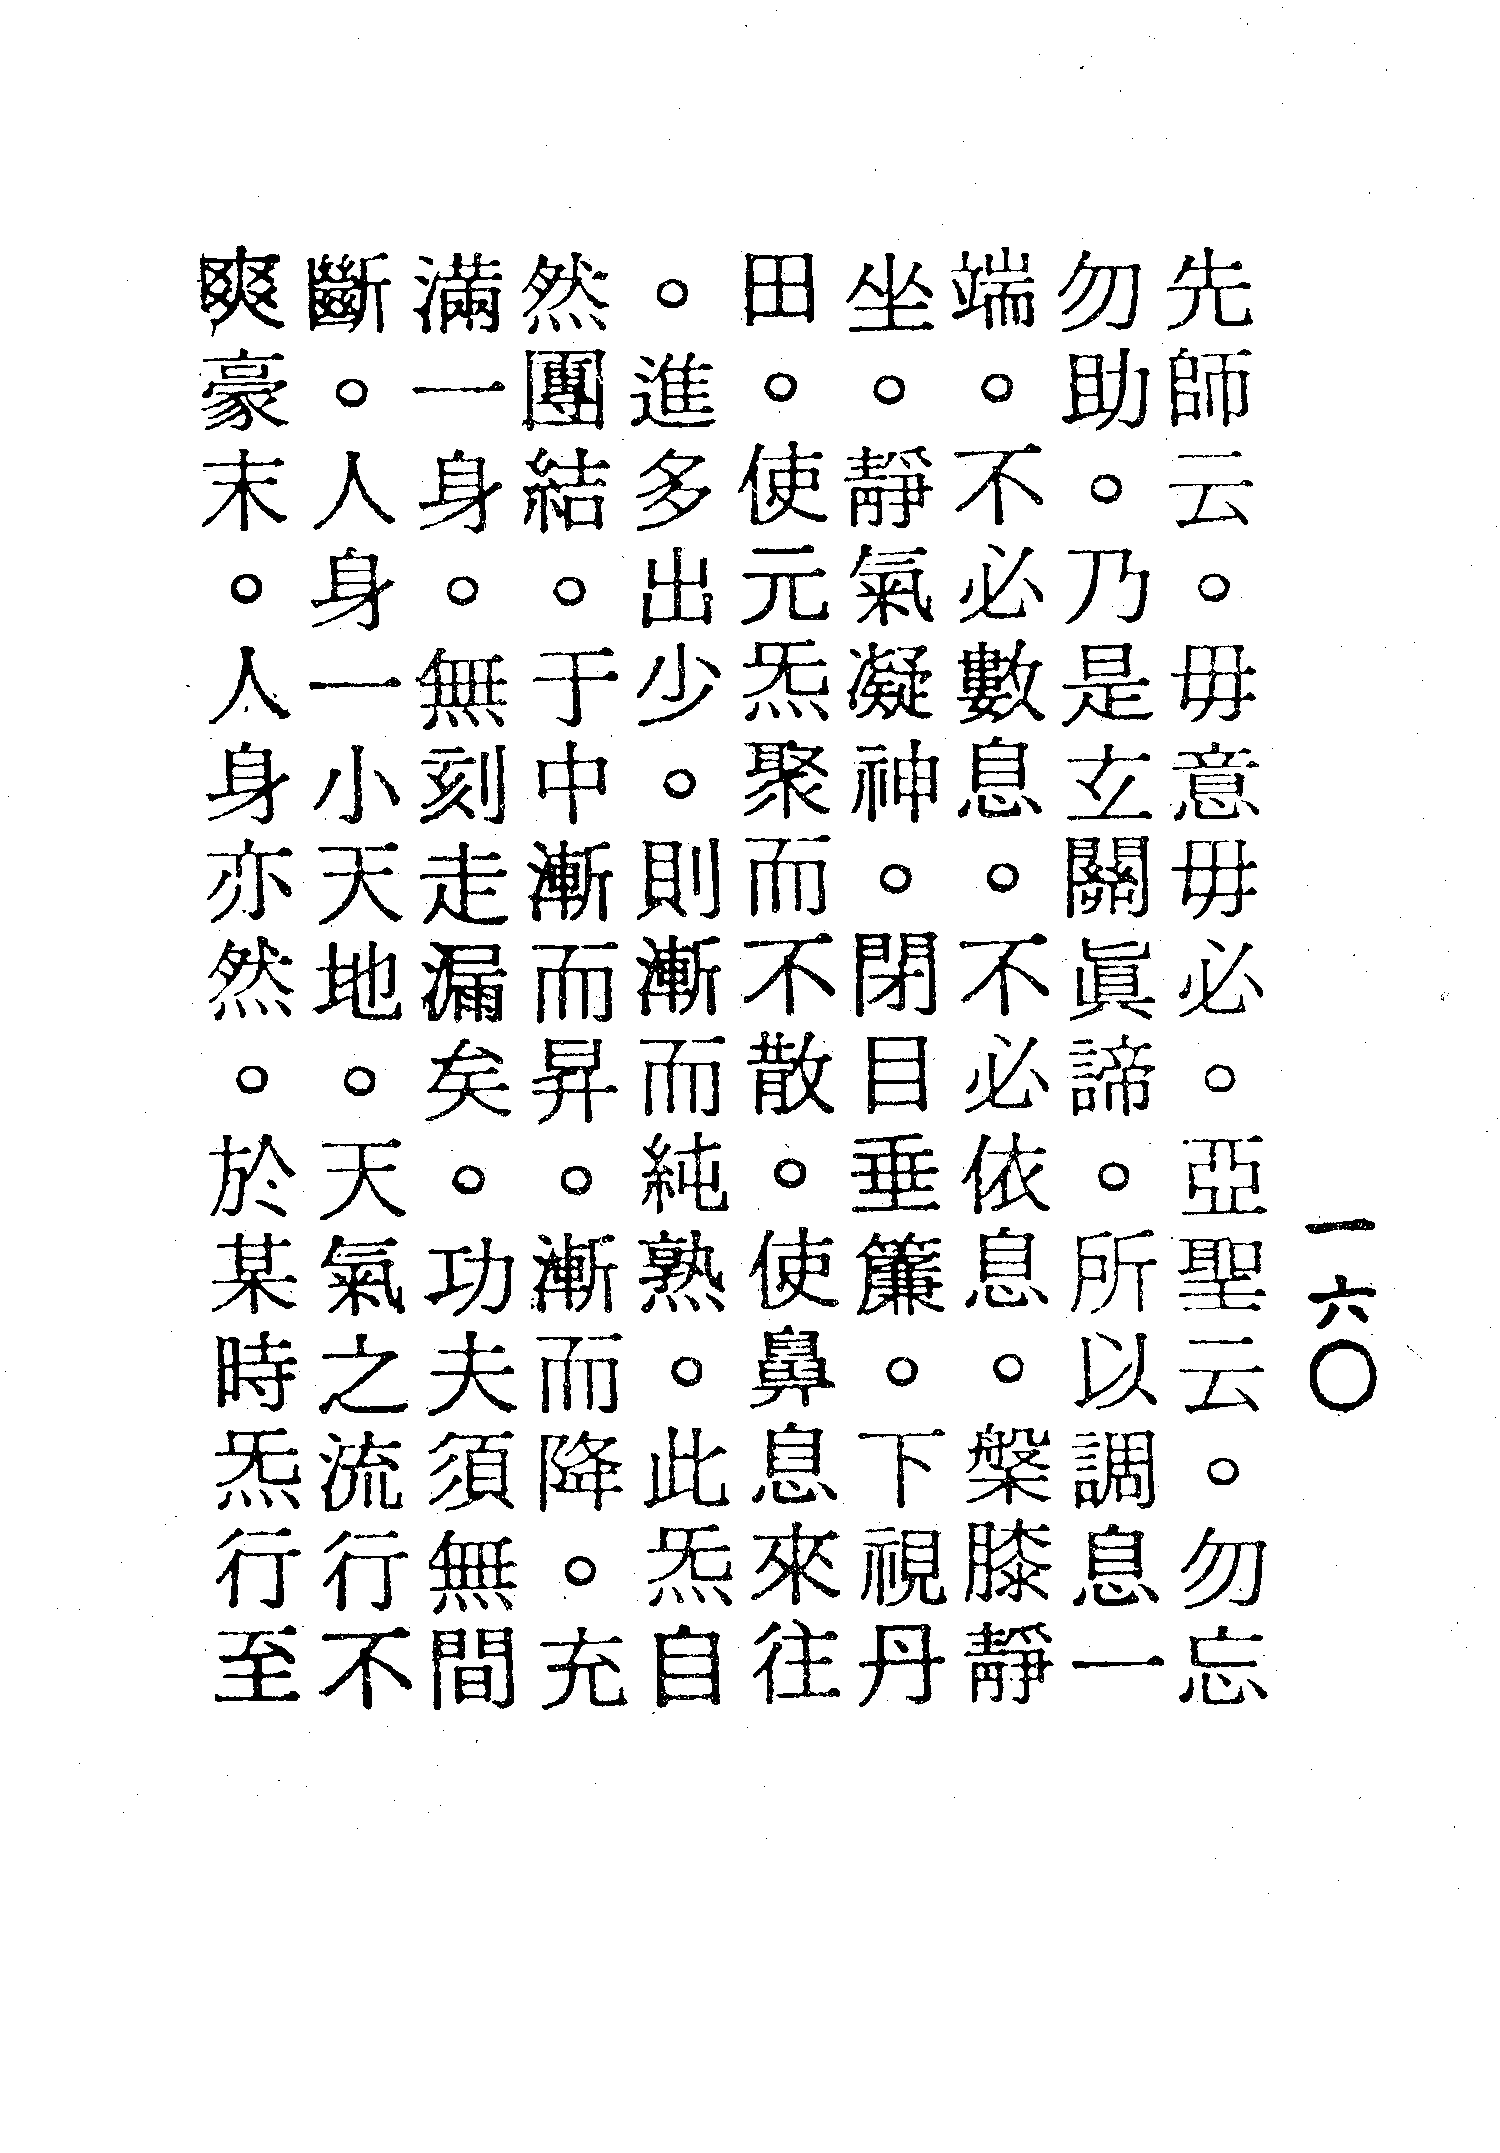 一六〇
先師云。毋意毋必。亞聖云。勿忘
勿助。乃是玄關眞諦。所以調息一
端。不必數息。不必依息。槃膝靜
坐。靜氣凝神。閉目垂簾。下視丹
田。使元炁聚而不散。使鼻息來往
。進多出少。則漸而純熟。此炁自
然團結。于中漸而昇。漸而降。充
滿一身。無刻走漏矣。功夫須無間
斷。人身一小天地。天氣之流行不
爽豪末。人身亦然。於某時炁行至